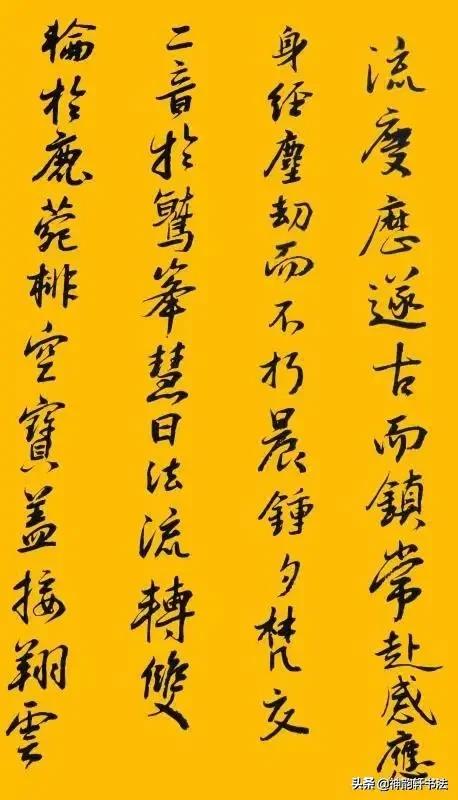 流慶歷遂古而鎮常赴感應
身經塵劫而不朽晨鍾夕梵交
二音於鷲峯慧日法流轉雙
輪於鹿菀排空寶盖接翔雲
头条 @神韵轩书法